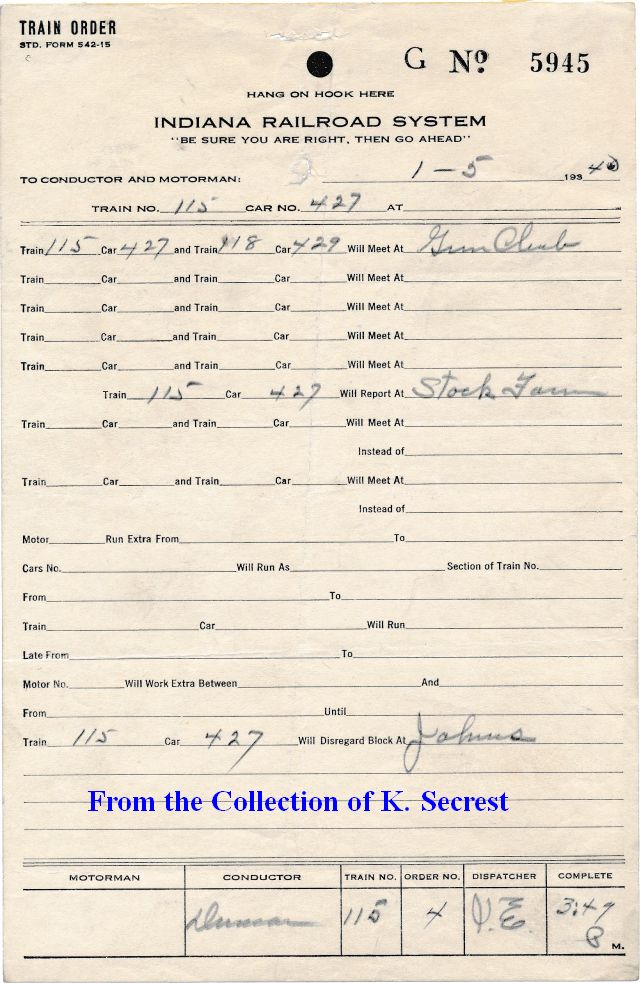 TRAIN ORDER
STD. FORM 542-15
G Nº 5945
HANG ON HOOK HERE
INDIANA RAILROAD SYSTEM
"BE SURE YOU ARE RIGHT, THEN GO AHEAD"
TO CONDUCTOR AND MOTORMAN: 1-5 193 40
TRAIN NO. 115 CAR NO. 427 AT
Train 115 Car 427 and Train 118 Car 429 Will Meet At Gun Club
Train Car and Train Car Will Meet At
Train Car and Train Car Will Meet At
Train Car and Train Car Will Meet At
Train Car and Train Car Will Meet At
Train 115 Car 427 Will Report At Stock Farm
Train Car and Train Car Will Meet At
Instead of
Train Car and Train Car Will Meet At
Instead of
Motor Run Extra From To
Cars No. Will Run As Section of Train No.
From To
Train Car Will Run
Late From To
Motor No. Will Work Extra Between And
From Until
Train 115 Car 427 Will Disregard Block At Johns
From the Collection of K. Secrest
MOTORMAN CONDUCTOR TRAIN NO. ORDER NO. DISPATCHER COMPLETE
115 4 3:47
P M.